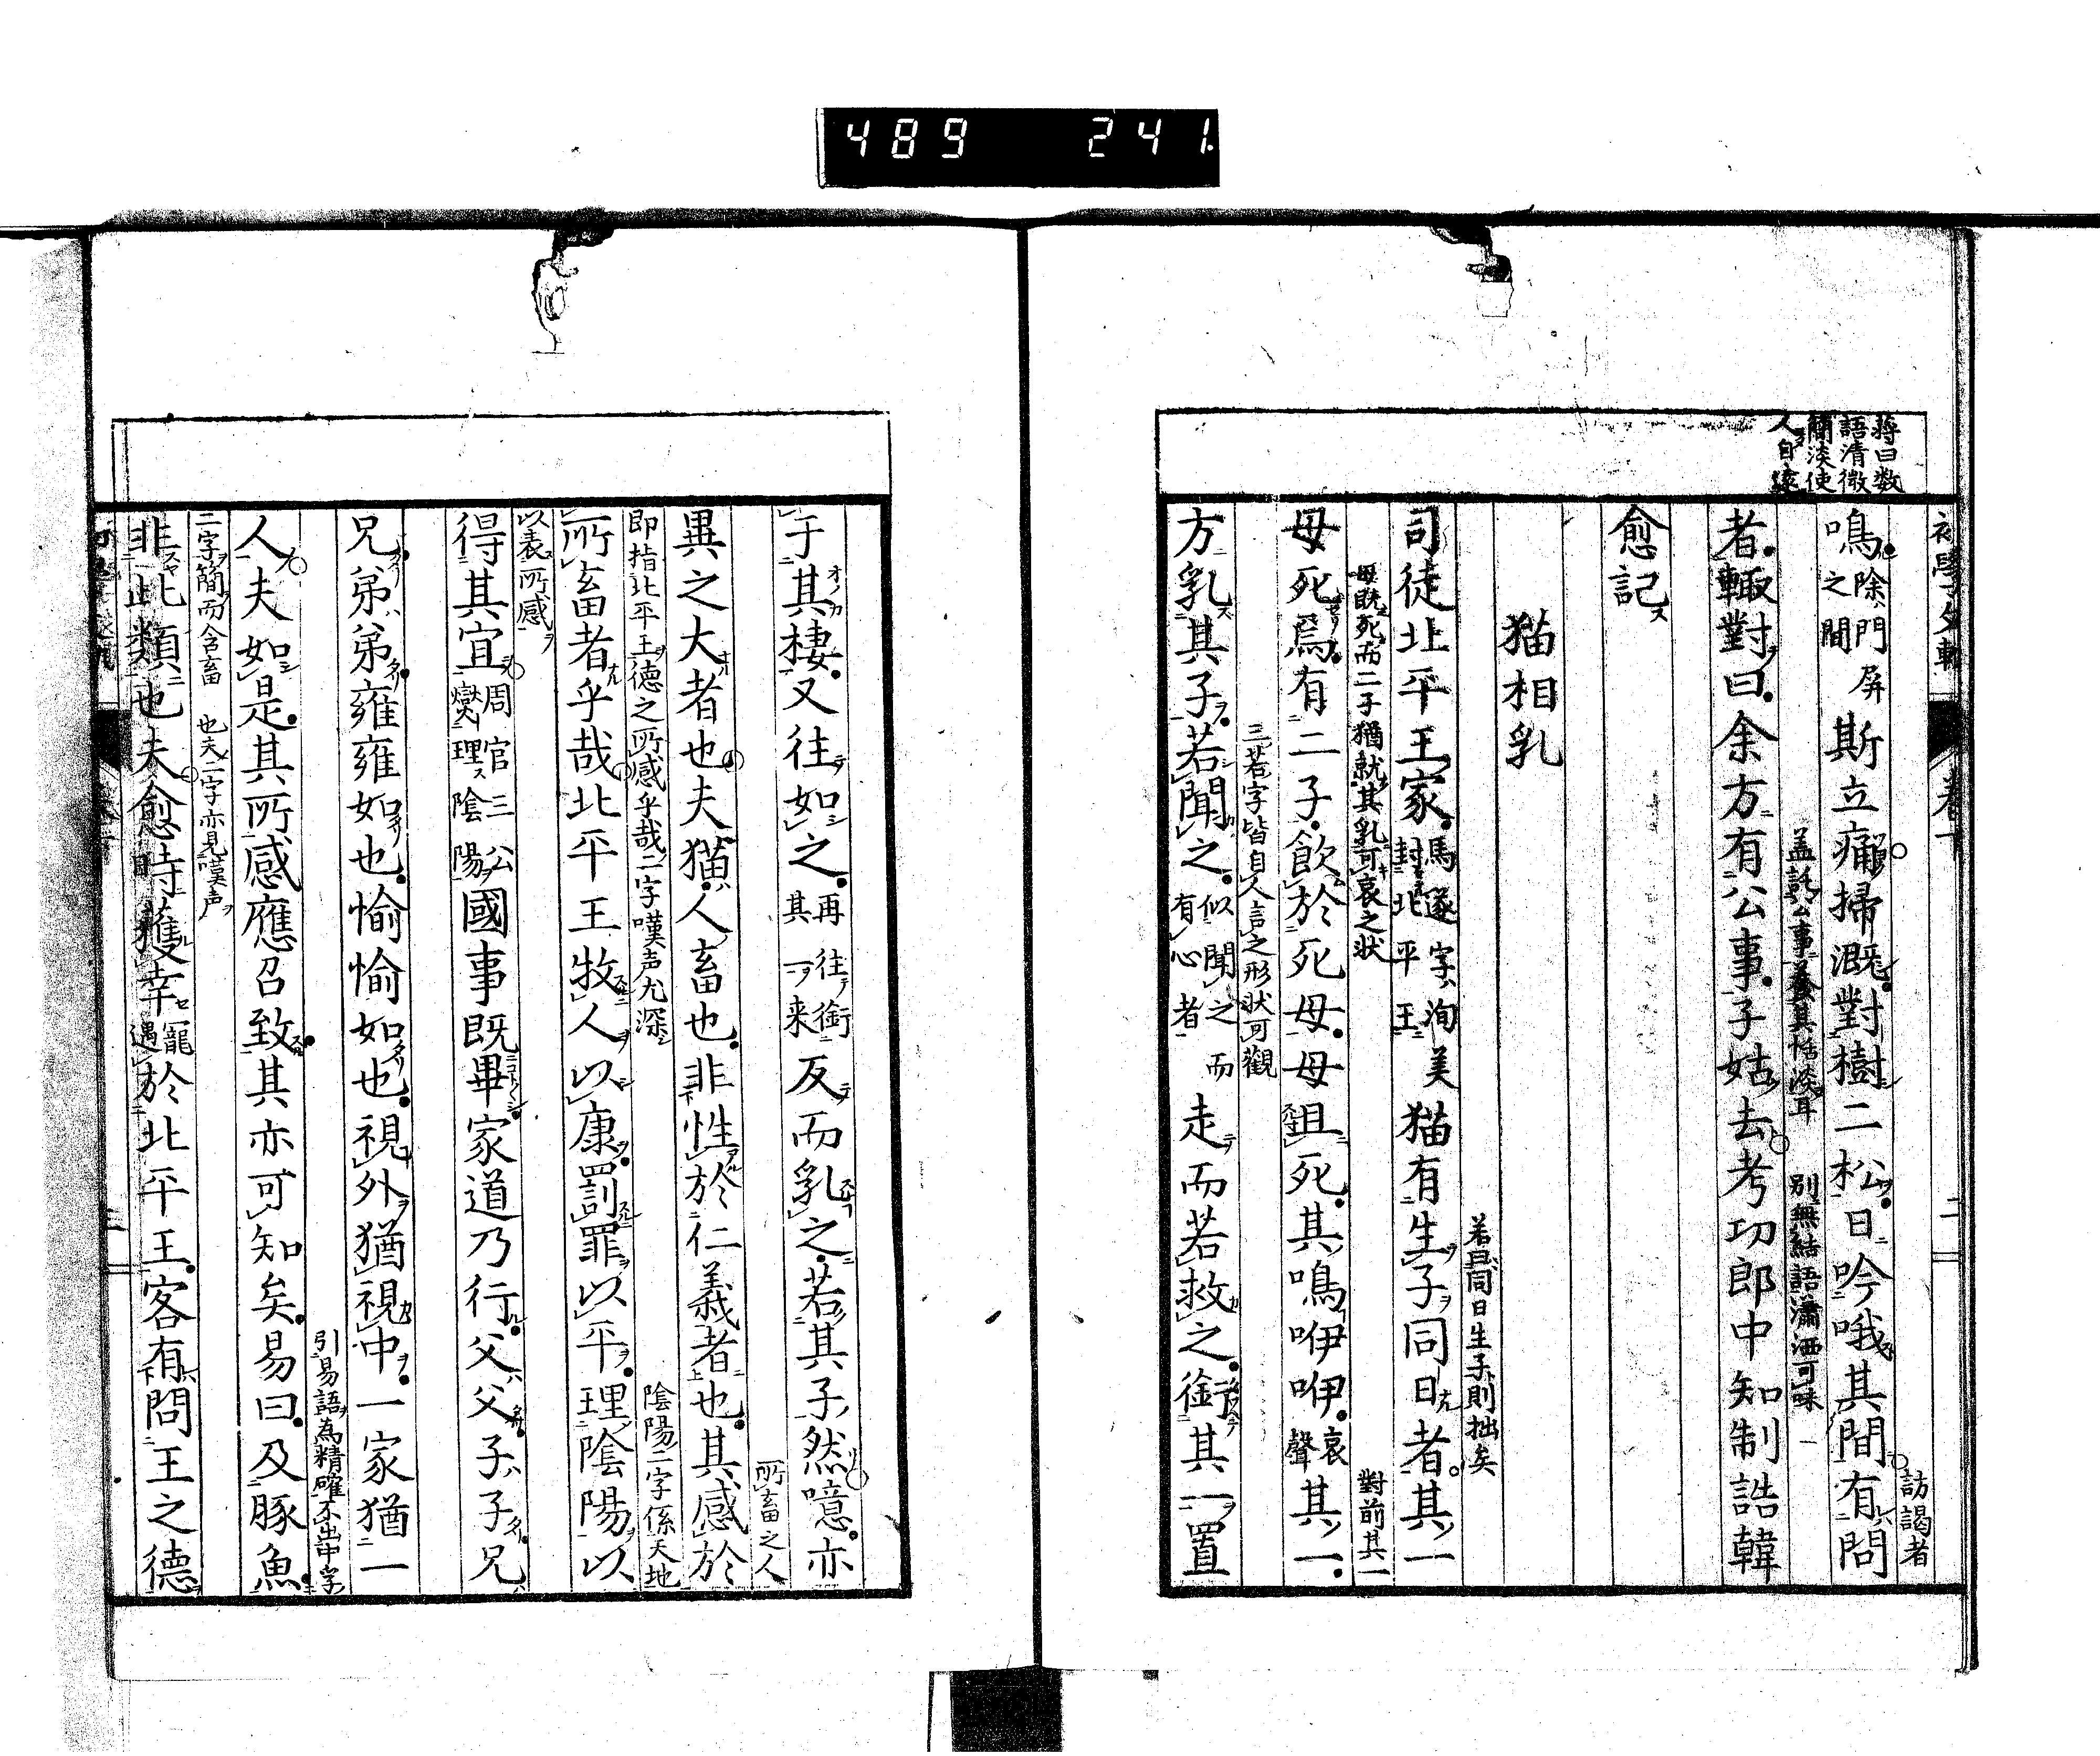 489 241
蒋曰数
語清微
簡淡使
人自遠
訪謁者
鳴除門屏之間斯立痛掃漑對樹二松日吟哦其間有問
盖託公事養其恬淡耳 別無結語瀟洒可味
者輙對曰余方有公事子姑去考功郎中知制誥韓
愈記
猫相乳
若曰同日生子則拙矣
司徒北平王家馬遂字洵美封北平王猫有生子同日者其一
母既死而二子猶就其乳可哀之状 對前其一
母死焉有二子飲於死母母且死其鳴咿咿哀聲其一
三若字皆自人言之形状可觀
方乳其子若聞之似聞之而有心者走而若救之銜其一置
于其棲又往如之再往銜其一来反而乳之若其子然噫亦
所畜之人
異之大者也夫猫人畜也非性於仁義者也其感於
即指北平王德之所感乎哉二字嘆声尤深 陰陽二字係天地
所畜者乎哉北平王牧人以康罰罪以平理陰陽以
以表所感
得其宜周官三公燮理陰陽國事既畢家道乃行父父子子兄
兄弟弟雍雍如也愉愉如也視外猶視中一家猶一
引易語為精確不出中字
人夫如是其所感應召致其亦可知矣易曰及豚魚
二字簡而含畜 也夫二字亦見嘆声
非此類也夫愈時獲幸寵遇於北平王客有問王之德